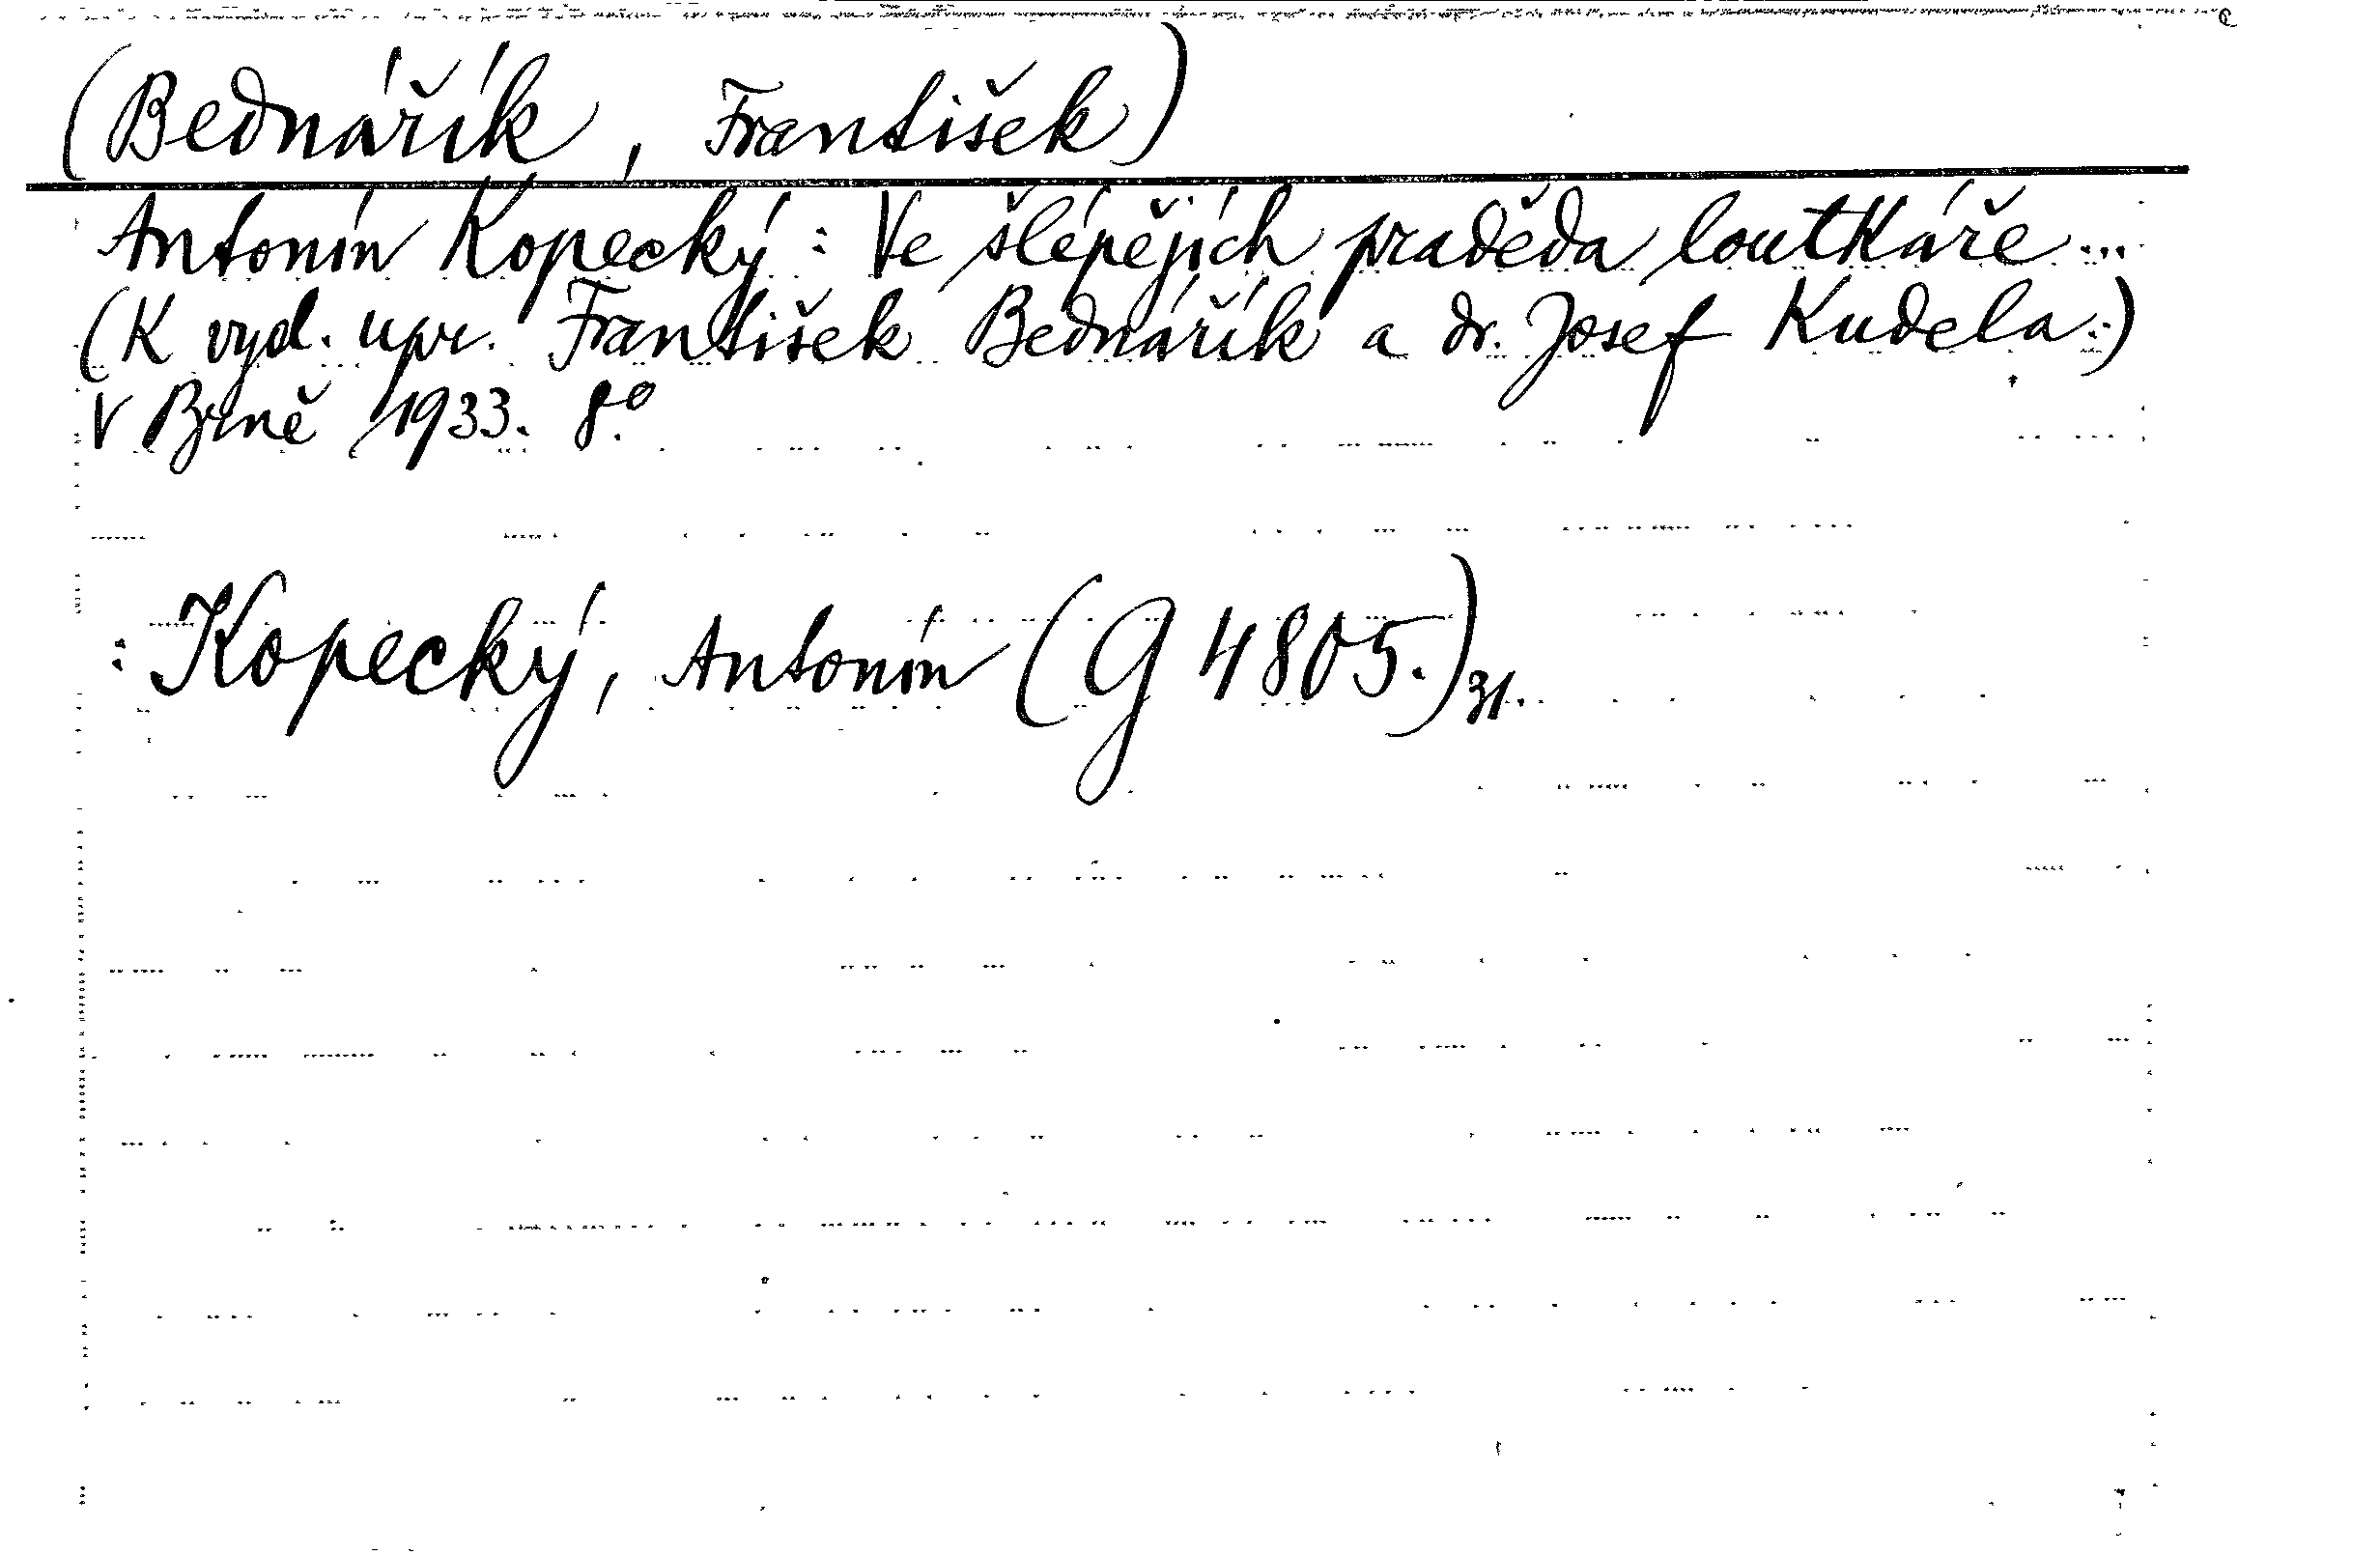 (Bednářík, František)
Antonín Kopecký: Ve šlépějích praděda loutkáře...
(K vyd. upr. František Bednářík a dr. Josef Kudela:)
V Brně 1933. 8°.
: Kopecký, Antonín (G 4805.) 31.